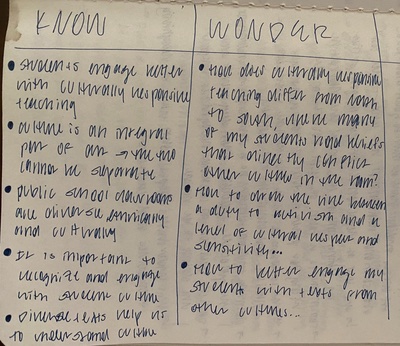 KNOW
• students engage better
with culturally responsive
teaching
• culture is an integral
part of art → the two
cannot be separate
• public school classrooms
are diverse, ethnically
and culturally
• It is important to
recognize and engage
with student culture
• Diverse texts help us
to understand culture
WONDER
• How does culturally responsive
teaching differ from north
to south, where many
of my students hold beliefs
that directly conflict
other cultures in the room?
• How to draw the line between
a duty to activism and a
level of cultural respect and
sensitivity...
• How to better engage my
students with texts from
other cultures...